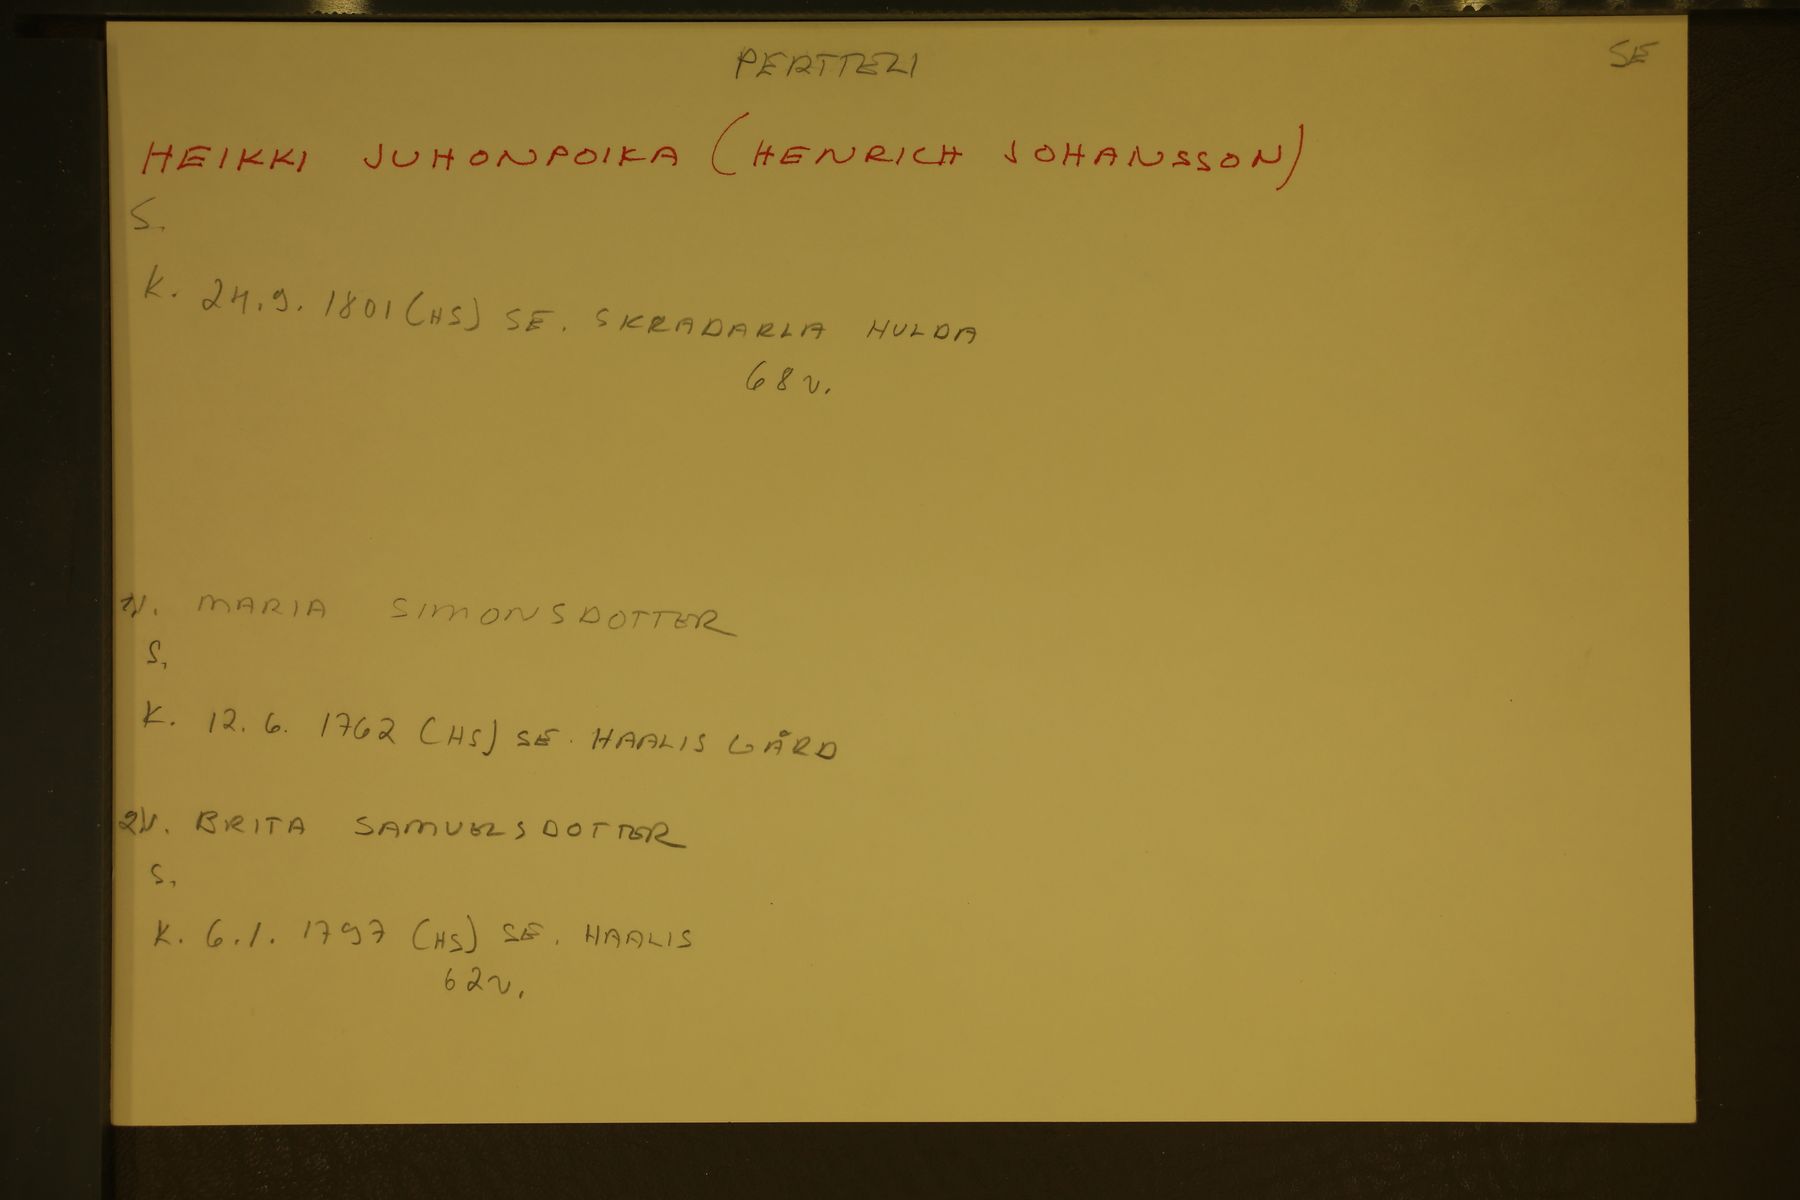 PERTTELI
SE
HEIKKI JUHONPOIKA (HENRICH JOHANSSON)
S.
K. 24.9. 1801 (HS) SE. SKRADARLA HULDA
68 v.
1V. MARIA SIMONSDOTTER
S.
K. 12.6. 1762 (HS) SE. HAALIS GÅRD
2V. BRITA SAMUELSDOTTER
S.
K. 6.1. 1797 (HS) SE. HAALIS
62 v.